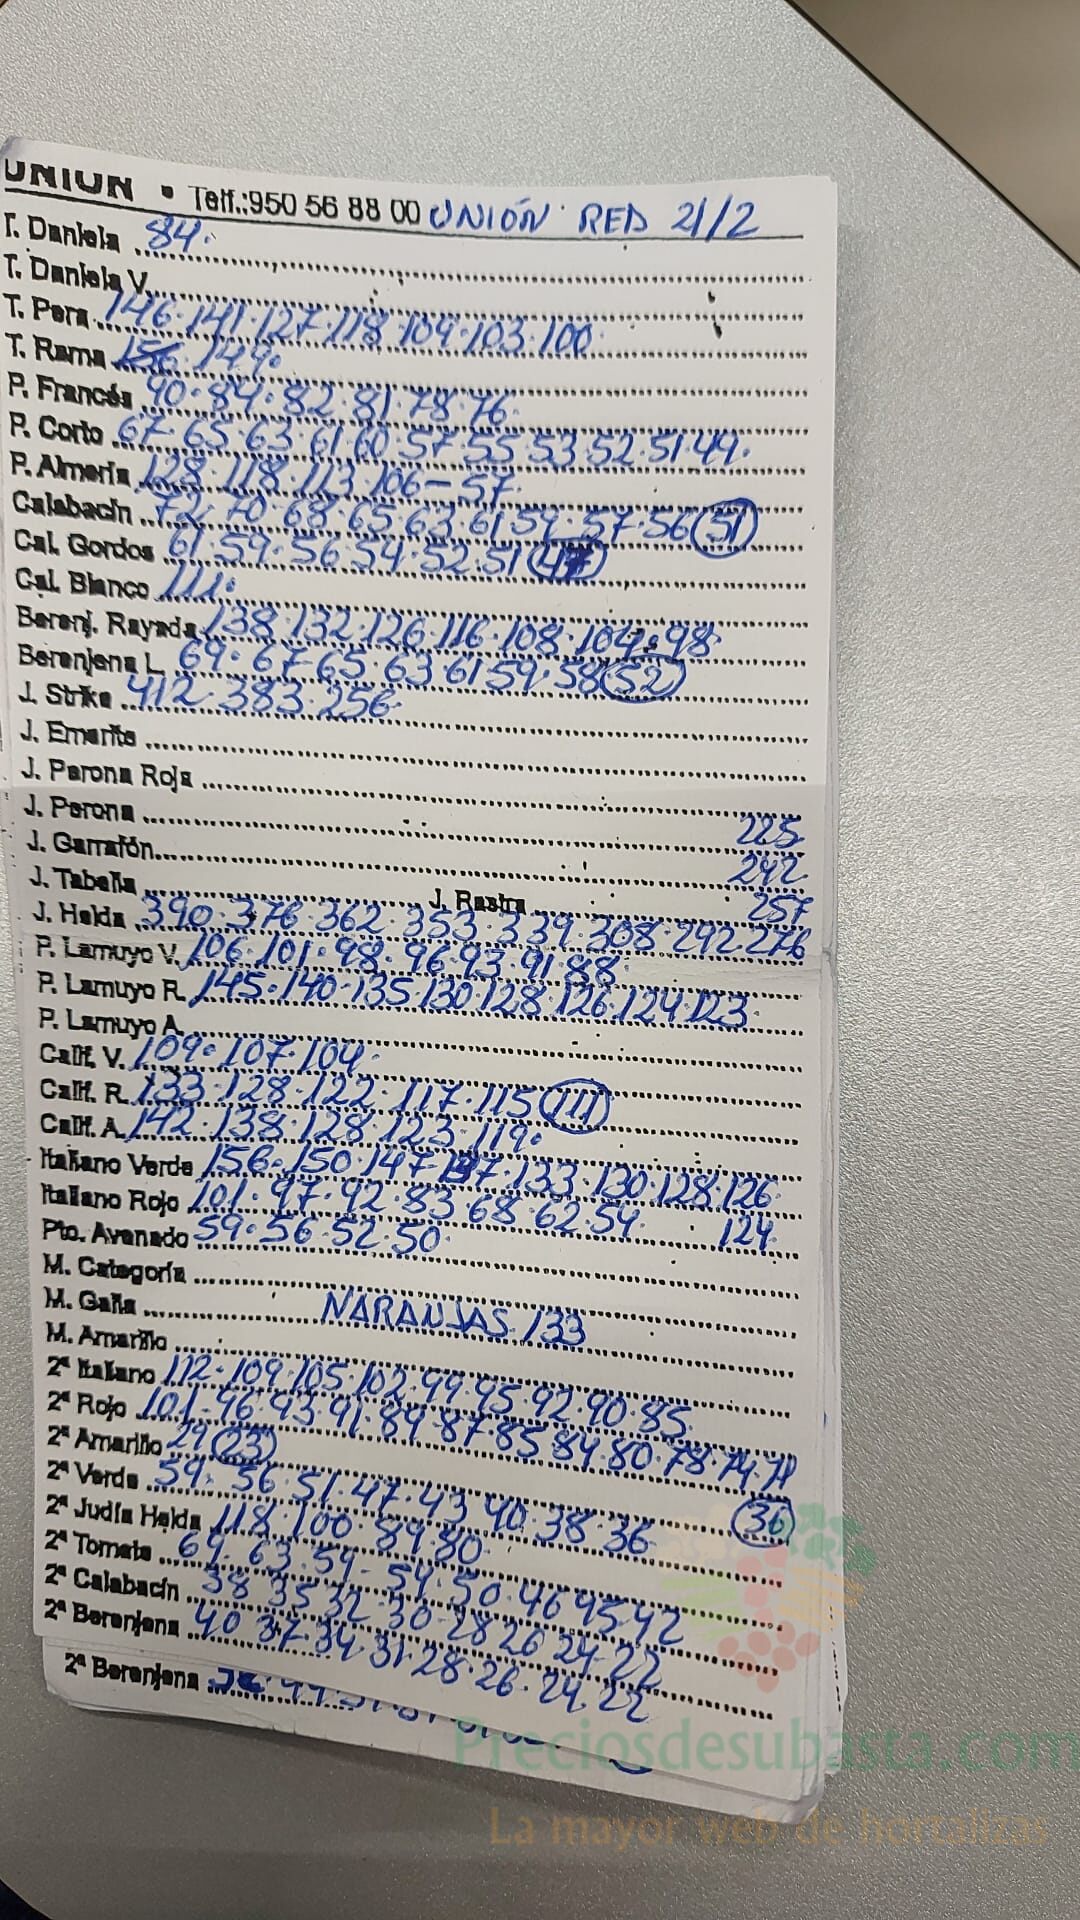 UNION • Telf.:950 56 88 00 UNIÓN RED 21/2
T. Daniela 84.
T. Daniela V.
T. Pera 146.141.127.118.109.103.100
T. Rama 156 149.
P. Francés 90.84.82.81.78.76.
P. Corto 67.65.63.61 60.57.55 53.52.51.49.
P. Almería 128.118.113.106-57.
Calabacín 72.70.68.65.63.61 59.57.56 51
Cal. Gordos 61.59.56.54.52.51 47
Cal. Blanco 111.
Berenj. Rayada 138.132.126.116.108.104.98.
Berenjena L. 69.67.65.63.61 59.58 52
J. Strike 412.383.256.
J. Emerite
J. Perona Roja
J. Perona 225
J. Garrafón 242
J. Tabella J. Rastra 257
J. Helda 390.376.362.353.339.308.292.276
P. Lamuyo V. 106.101.98.96.93.91.88.
P. Lamuyo R. 145.140.135.130.128.126.124.123.
P. Lamuyo A.
Calif. V. 109.107.104.
Calif. R. 133.128.122.117.115 111
Calif. A. 142.138.128.123.119.
Italiano Verde 156.150.147 137.133.130.128.126.
Italiano Rojo 101.97.92.83.68.62.54. 124.
Pto. Avenado 59.56.52.50.
M. Categoría
M. Galia NARANJAS 133
M. Amarillo
2ª Italiano 112.109.105.102.99.95.92.90.85.
2ª Rojo 101.96.93.91.89.87.85.84.80.78.74.71
2ª Amarillo 29 23
2ª Verde 59.56.51.47.43 40.38.36 36
2ª Judía Helda 118.100.89.80
2ª Tomate 69.63.59-54.50.46 45 42
2ª Calabacín 38 35 32-30-28 26 24.22
2ª Berenjena 40 37.34 31.28.26.24.22
2ª Berenjena
Preciosdesubasta.com
La mayor web de hortalizas